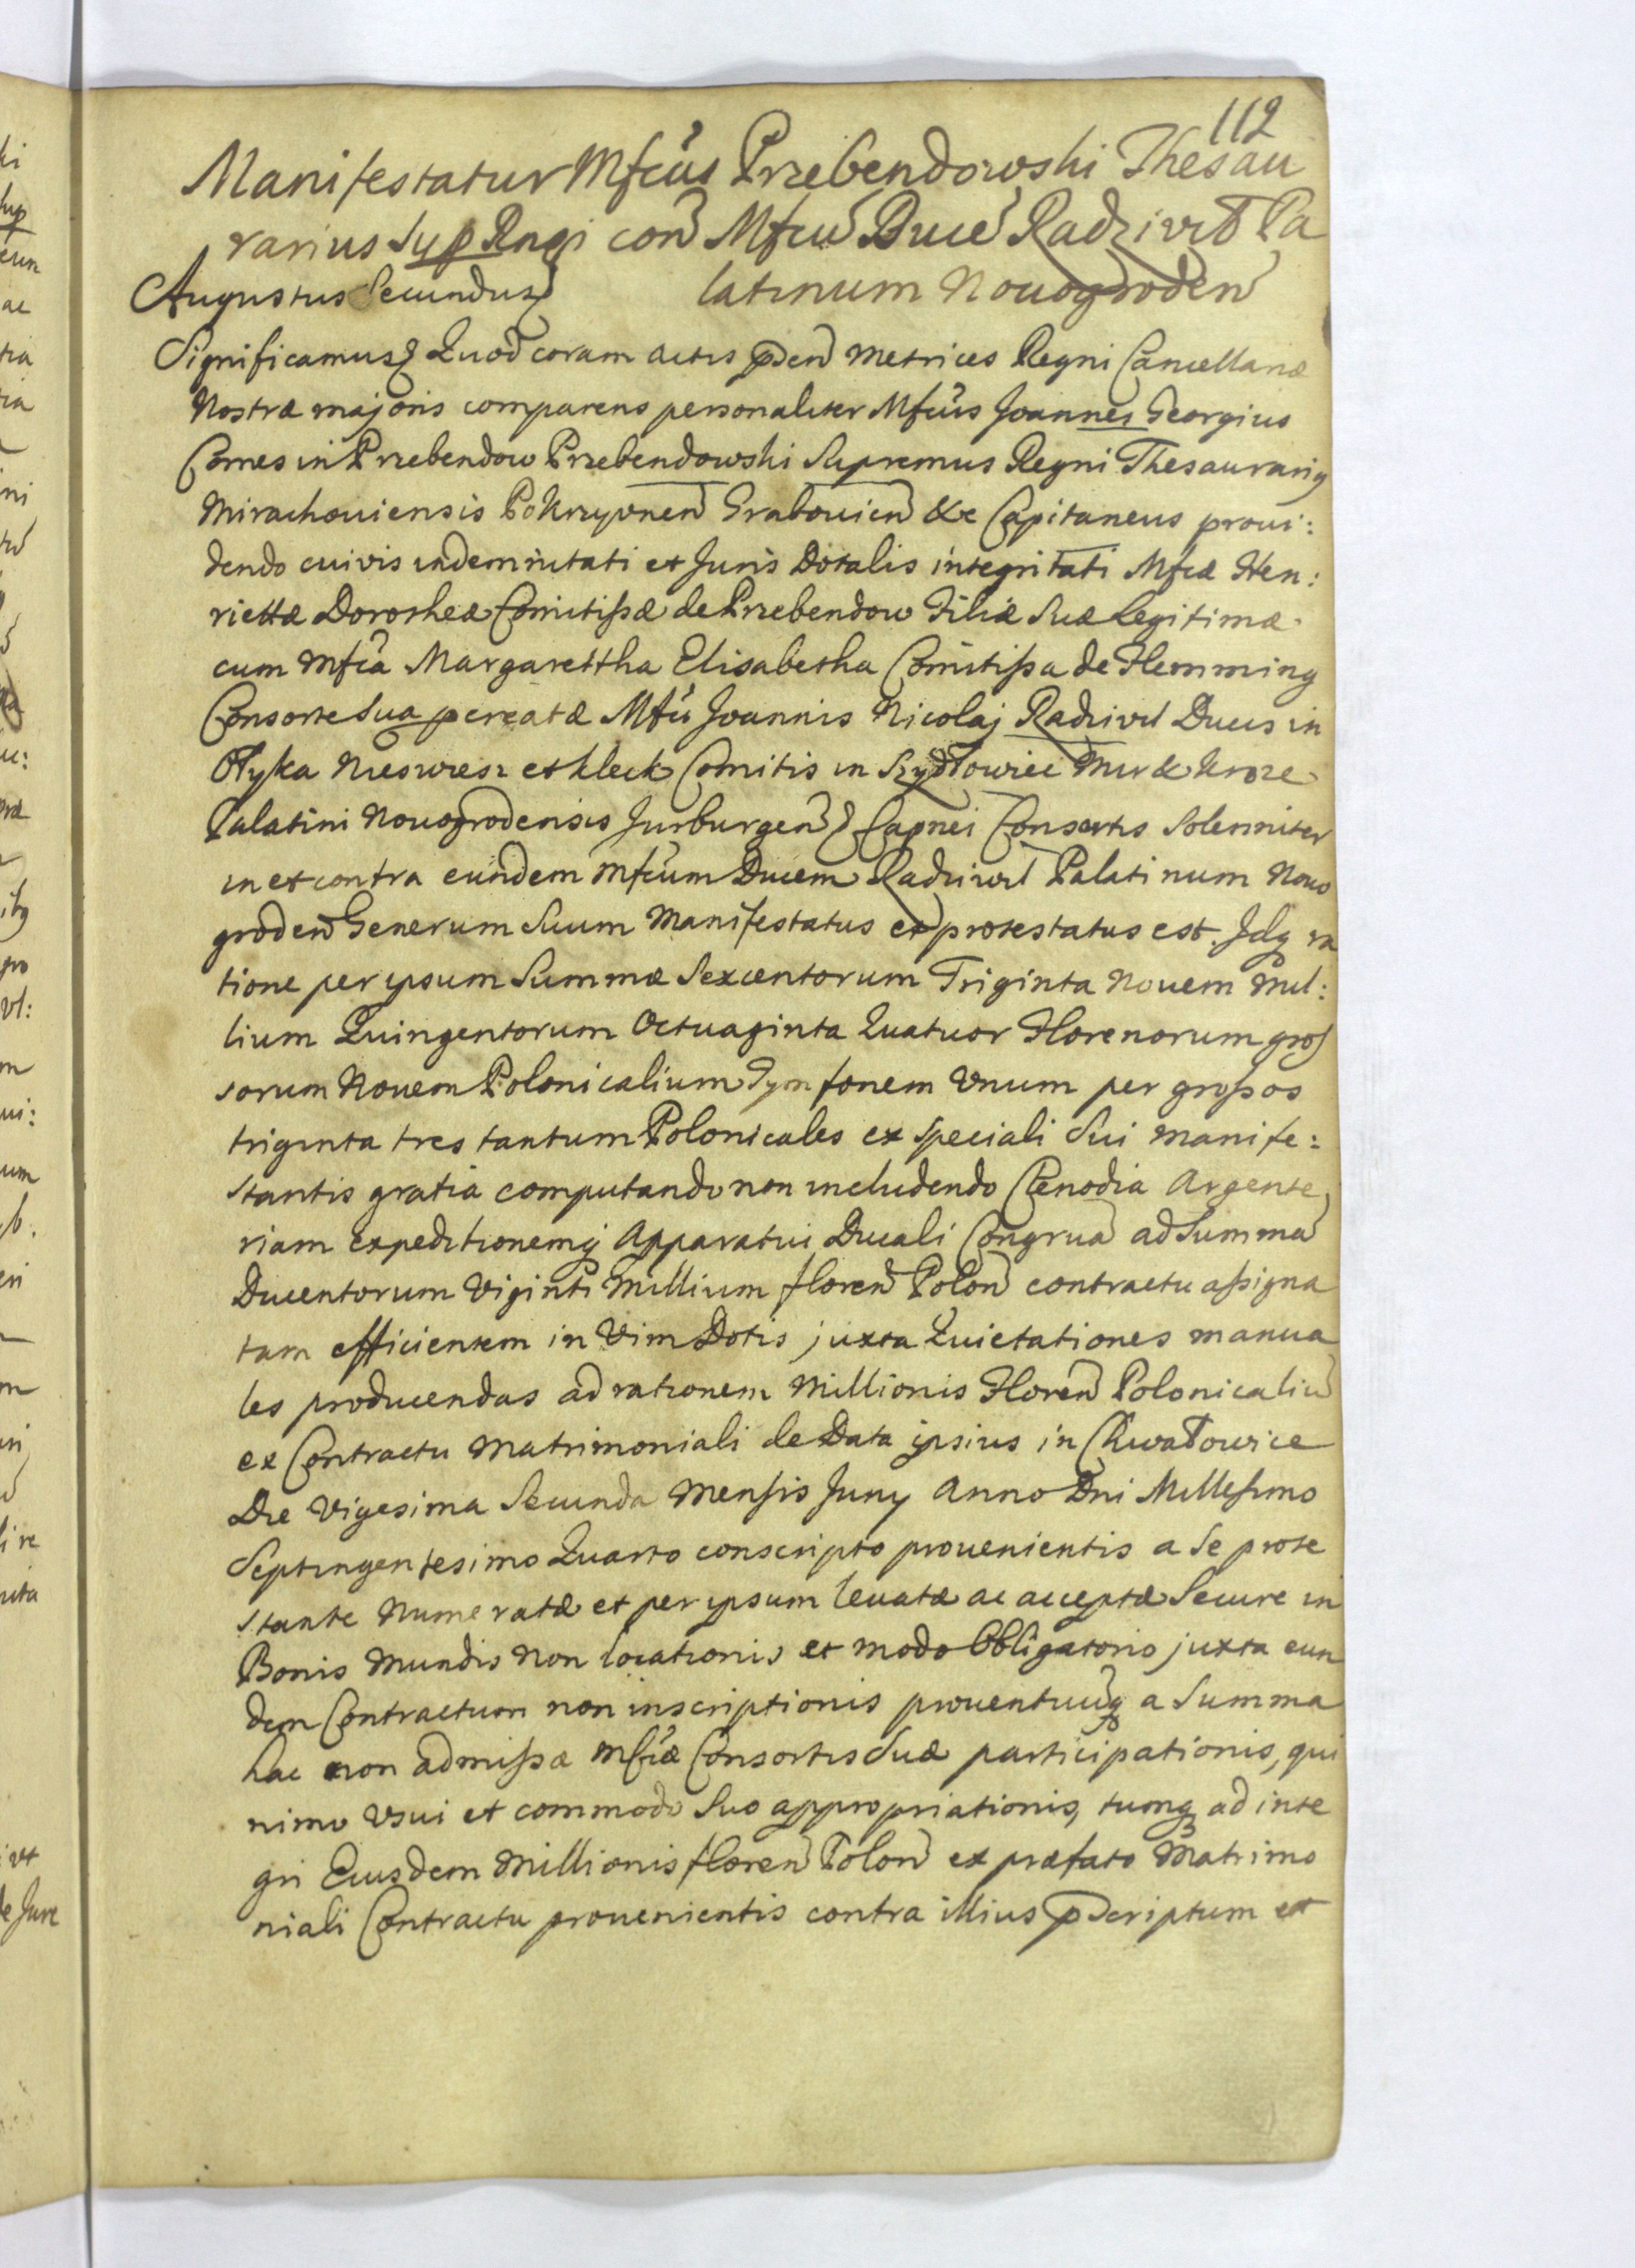 112
Manifestatur Mfcus Przebendowski Thesau
rarius Sup Regni con Mfcu Duce Radziwił Pa
Augustus Secundus latinum Nouogroden
Significamus Quod coram actis pden Metrices Regni Cancellariæ
Nostræ majoris comparens personaliter Mfcus Joannes Georgius
Comes in Przebendow Przebendowski Supremus Regni Thesaurariq
Mirachouiensis Pokrzywnen Grabouien &c Capitaneus proui:
dendo cuivis indemnitati et Juris Dotalis integritati Mfcæ Hen:
riettæ Dorotheæ Comitissæ de Przebendow Filiæ Suæ Legitimæ
cum Mfca Margarettha Elisabetha Comitissa de Flemming
Consorte Sua percatæ Mfci Joannis Nicolaj Radziwił Ducis in
Ołyka Nieswiesz et kleck Comitis in Szydłowiec Mir & kroze
Palatini Nouogrodensis Jurburgen Capnei Consortis Solenniter
in et contra eundem Mfcum Ducem Radziwił Palatinum Nouo
groden Generum Suum Manifestatus et protestatus est. Idq ra
tione per ipsum Summæ Sexcentorum Triginta Nouem Mil:
lium Quingentorum Octuaginta Quatuor Florenorum gros
sorum Nouem Polonicalium Tymfonem Vnum per grossos
triginta tres tantum Polonicales ex Speciali Sui Manife:
stantis gratia computando non includendo Clenodia Argente
riam expeditionemq Apparatui Ducali Congrua ad Summa
Ducentorum Viginti Millium floren Polon contractu assigna
tam efficientem in Vim Dotis juxta Quietationes manua
les producendas ad rationem Millionis Floren Polonicaliu
ex Contractu Matrimoniali de Data ipsius in Chwałowice
Die Vigesima Secunda Mensis Juny Anno Dni Millesimo
Septingentesimo Quarto conscripto prouenientis a Se prote
stante Numeratæ et per ipsum leuatæ ac acceptæ Secure in
Bonis Mundis Non locationis et modo Obligatorio juxta eun
dem Contractum non inscriptionis prouentuuq a Summa
hac non admissæ Mfcæ Consortis Suæ participationis, qui
nimo Vsui et commodo Suo appropriationis, tumq ad inte
gri Eiusdem Millionis floren Polon ex præfato Matrimo
niali Contractu prouenientis contra illius pscriptum et